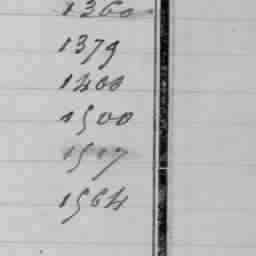 1360
1379
1400
1500
1517
1564